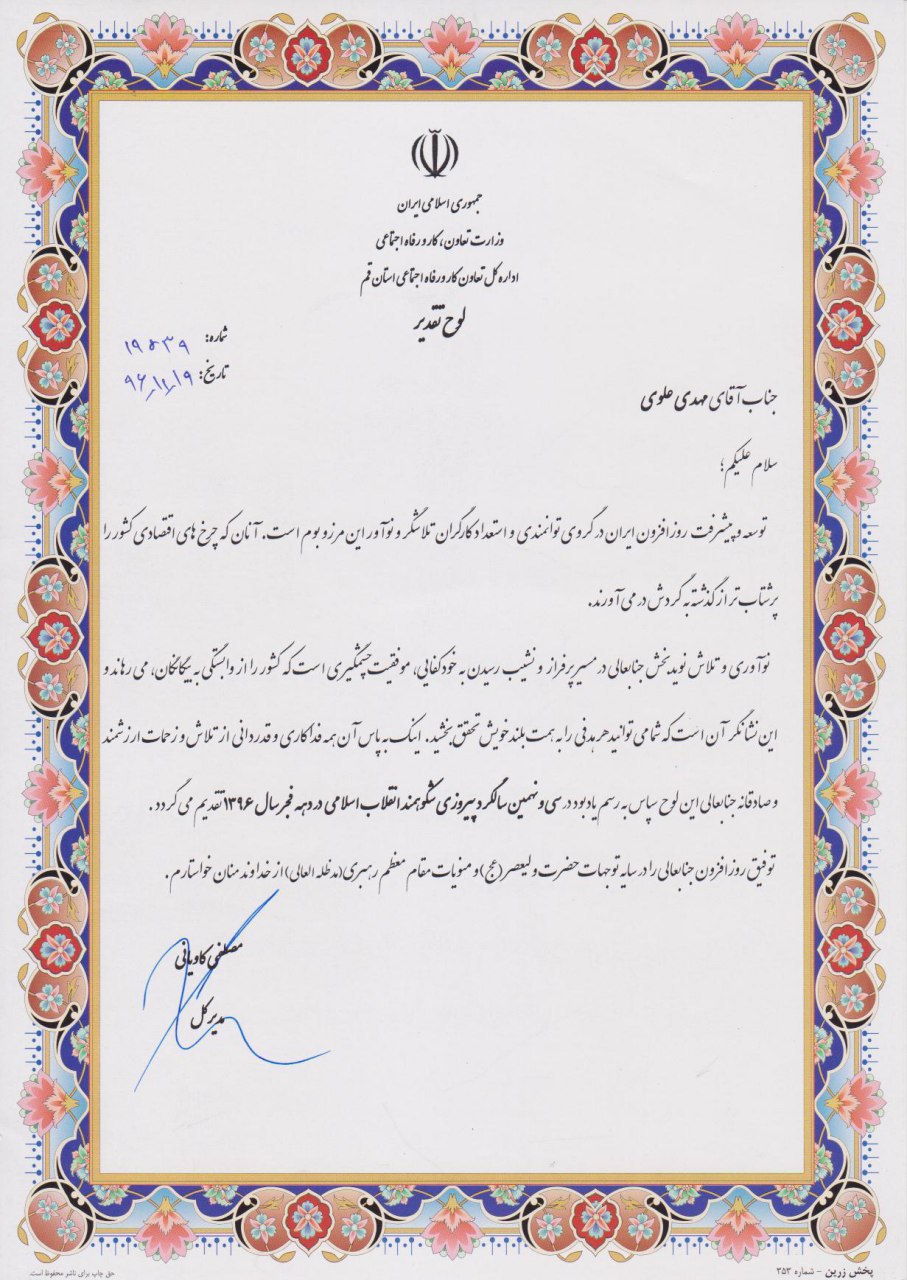 جمهوری اسلامی ایران
وزارت تعاون، کار و رفاه اجتماعی
اداره کل تعاون کار و رفاه اجتماعی استان قم
لوح تقدیر
شماره: ۱۹۵۳۹
تاریخ: ۹۶/۱۱/۱۹
جناب آقای مهدی علوی
سلام علیکم؛
توسعه و پیشرفت روزافزون ایران در گروی توانمندی و استعداد کارگران تلاشگر و نوآور این مرز و بوم است. آنان که چرخ های اقتصادی کشور را
پرشتاب تر از گذشته به گردش در می آورند.
نوآوری و تلاش نوید بخش جنابعالی در مسیر پر فراز و نشیب رسیدن به خودکفایی، موفقیت چشمگیری است که کشور را از وابستگی به بیگانگان، می رهاند و
این نشانگر آن است که شما می توانید هر هدفی را به همت بلند خویش تحقق بخشید. اینک به پاس آن همه فداکاری و قدردانی از تلاش و زحمات ارزشمند
و صادقانه جنابعالی این لوح سپاس به رسم یادبود در سی و نهمین سالگرد پیروزی شکوهمند انقلاب اسلامی در دهه فجر سال ۱۳۹۶ تقدیم می گردد.
توفیق روز افزون جنابعالی را در سایه توجهات حضرت ولیعصر (عج) و منویات مقام معظم رهبری (مدظله العالی) از خداوند منان خواستارم.
مصطفی کاویانی
مدیر کل
پخش زرین - شماره ۳۵۳
حق چاپ برای ناشر محفوظ است.